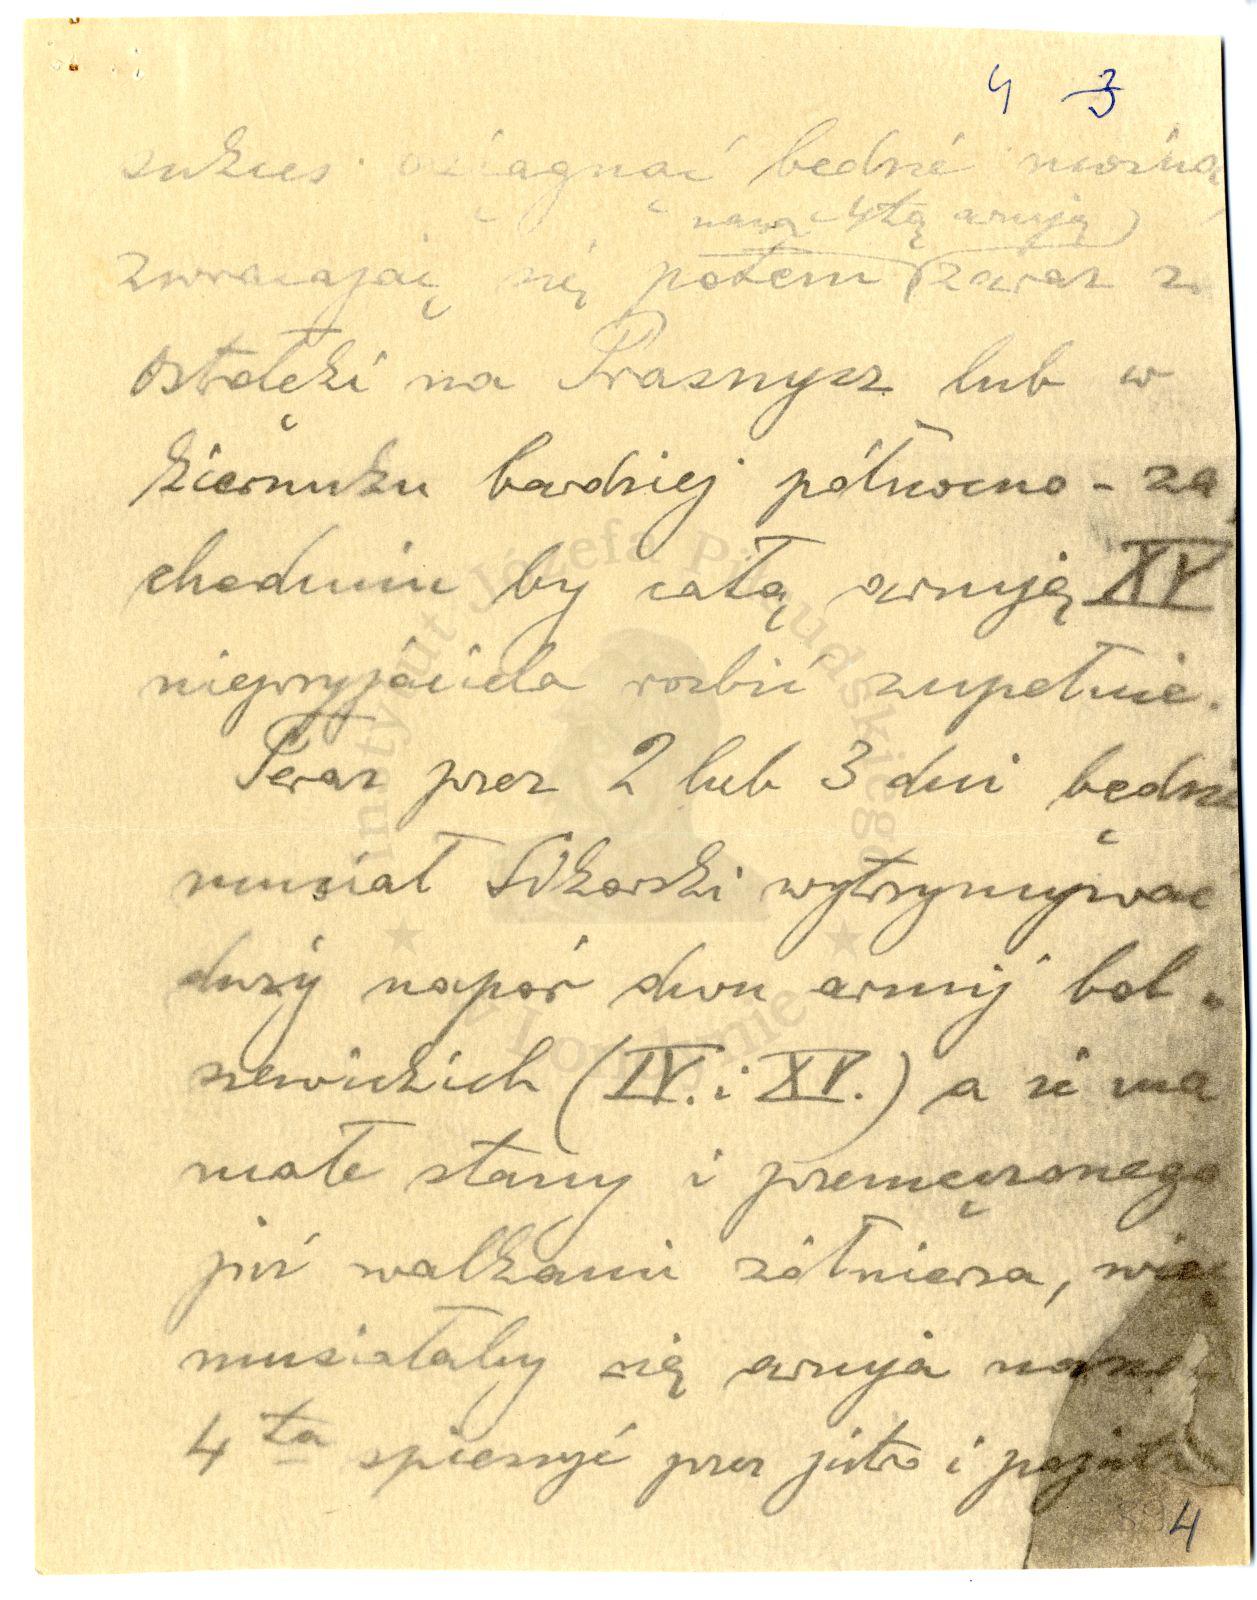 4 3
sukces osiągnąć będzie można
naszą 4tą armją
zwracając się potem zaraz z
Ostrołęki na Prasnysz lub w
kierunku bardziej północno-za
chodnim by całą armję XV
nieprzyjaciela rozbić zupełnie.
Teraz przez 2 lub 3 dni będzie
musiał Sikorski wytrzymywać
duży napór dwu armij bol-
szewickich (IV. i XV.) a że ma
małe stany i przemęczonego
już walkami żołnierza, więc
musiałaby się armja nasza
4ta spieszyć przez jutro i pojutrze
894
4
Instytut Józefa Piłsudskiego
w Londynie